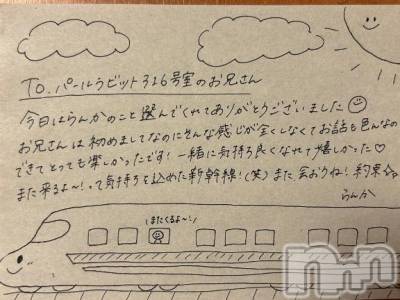 To.パールラビット326号室のお兄さん
今日はらんかのこと選んでくれてありがとうございました
お兄さんは初めましてなのにそんな感じが全くしなくてお話も色んなの
できてとっても楽しかったです!一緒に気持ち良くなれて嬉しかった♡
また来るよ〜!って気持ちを込めた新幹線!(笑)また会おうね!約束☆
らんか
またくるよ〜!